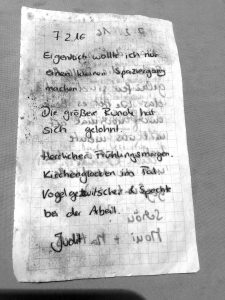 7.2.16
Eigentlich wollte ich nur
einen kleinen Spaziergang
machen.
Die größere Runde hat
sich gelohnt.
Herrlicher Frühlingsmorgen.
Kirchenglocken im Tal
Vogelgezwitscher & Spechte
bei der Arbeit.
Judith